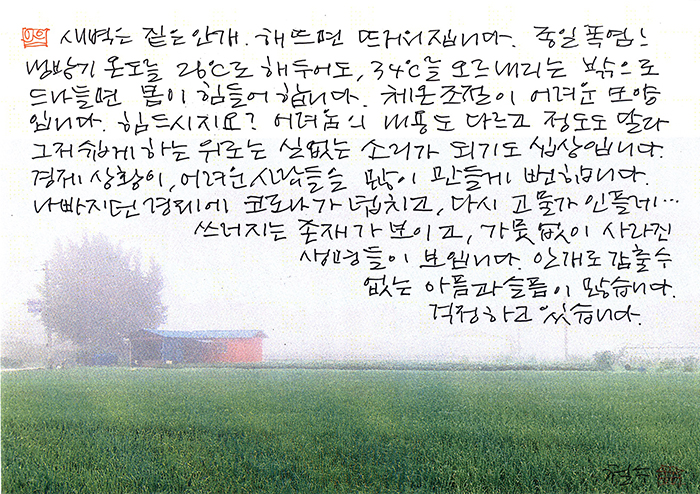 새벽는 짙은 안개. 해뜨면 뜨거워집니다. 종일 폭염!
냉방기 온도를 28℃로 해두어도, 34℃를 오르내리는 밖으로
드나들면 몸이 힘들어합니다. 체온조절이 어려운 모양
입니다. 힘드시지요? 어려움의 내용도 다르고 정도도 달라
그저 쉽게하는 위로는 실없는 소리가 되기도 십상입니다.
경제 상황이, 어려운 사람들을 많이 만들게 뻔합니다.
나빠지던 경제에 코로나가 덮치고, 다시 고물가 인플레…
쓰러지는 존재가 보이고, 가뭇없이 사라진
생명들이 보입니다. 안개로 감출 수
없는 아픔과 슬픔이 많습니다.
걱정하고 있습니다.
철수